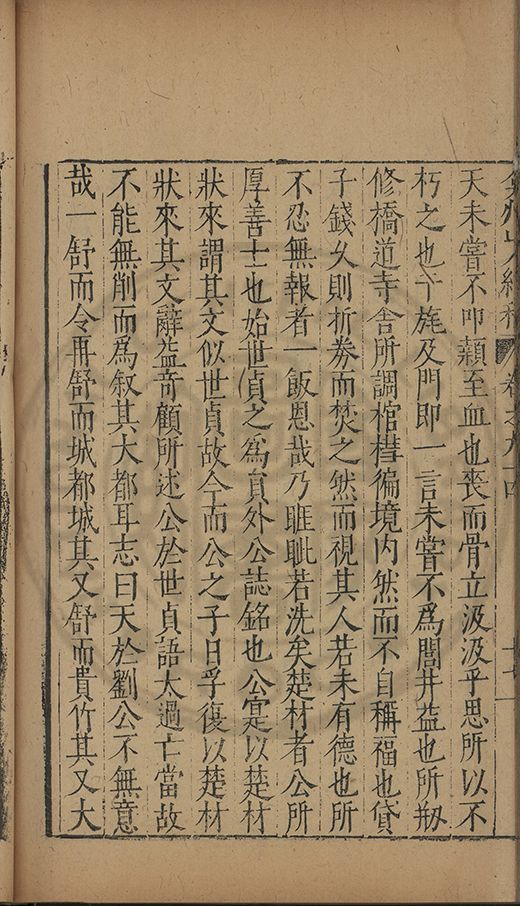 天未嘗不叩顙至血也喪而骨立汲汲乎思所以不
朽之也干旄及門即一言未嘗不為閭井益也所剏
修橋道寺舍所調棺槥徧境內然而不自稱福也貸
子錢久則折券而焚之然而視其人若未有德也所
不忍無報者一飯恩哉乃睚眦若洗矣楚材者公所
厚善士也始世貞之為員外公誌銘也公寔以楚材
狀來謂其文似世貞故今而公之子日孚復以楚材
狀來其文辭益奇顧所述公於世貞語太過亡當故
不能無削而為叙其大都耳志曰天於劉公不無意
哉一舒而令再舒而城都城其又舒而貴竹其又大